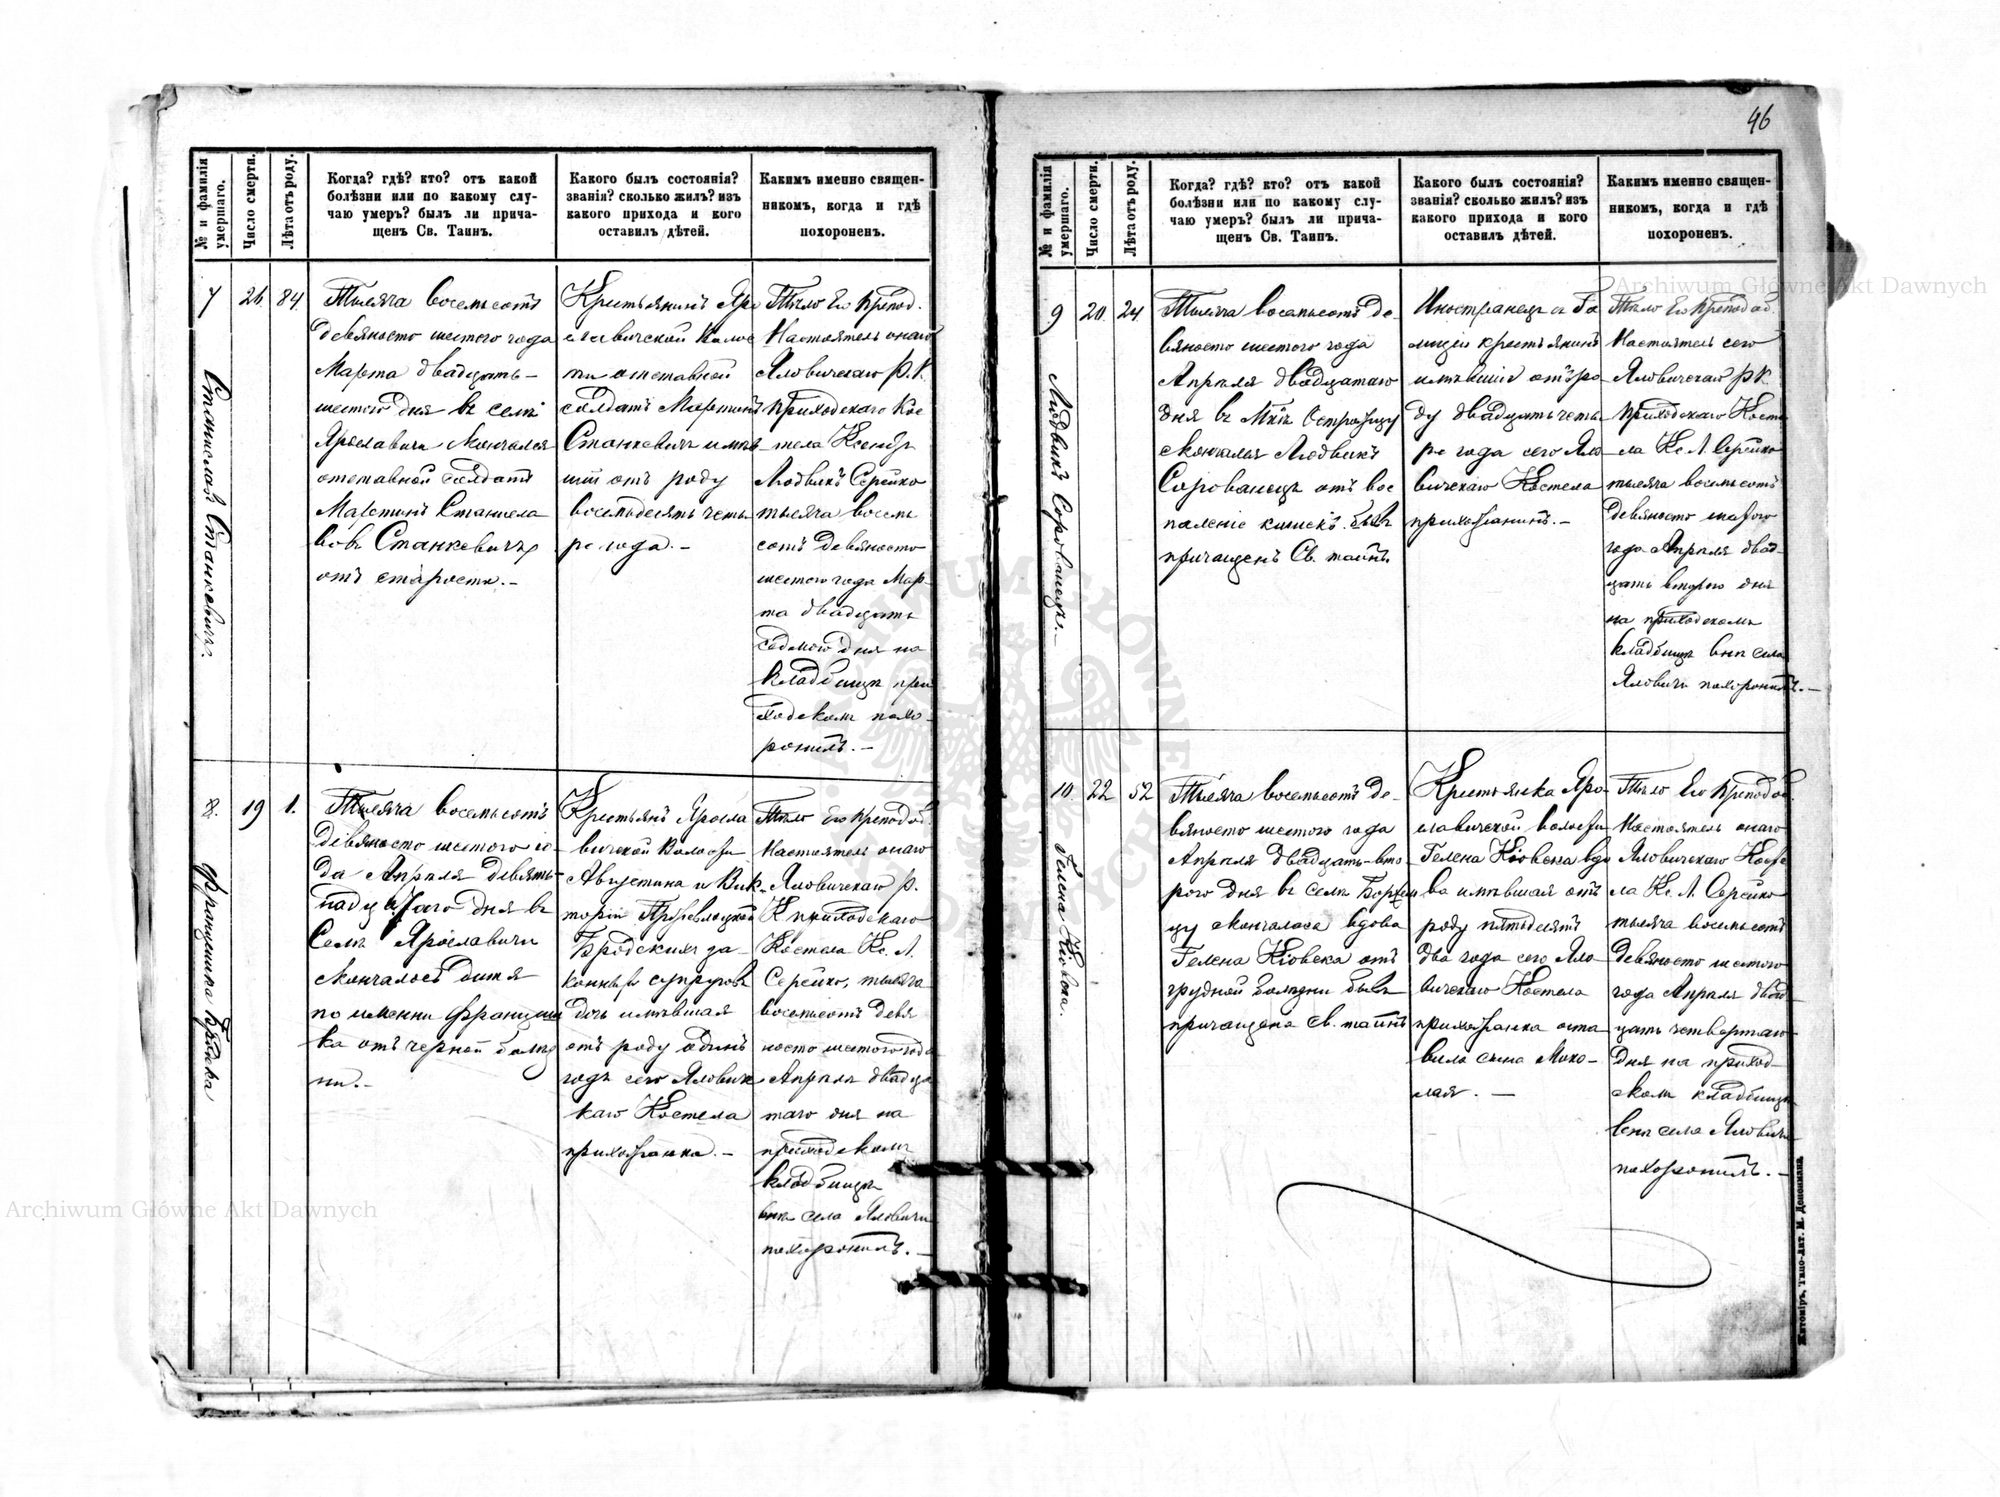 46
№ и фамилія умершаго.
Число смерти.
Лѣта отъ роду.
Когда? гдѣ? кто? отъ какой
болѣзни или по какому слу-
чаю умеръ? былъ ли прича-
щенъ Св. Таинъ.
Какого былъ состоянія?
званія? сколько жилъ? изъ
какого прихода и кого
оставилъ дѣтей.
Какимъ именно священ-
никомъ, когда и гдѣ
похороненъ.
7
26
84
Станкевичъ.
Тысяча восемьсотъ
девяносто шестого года
Марта двадцать-
шестого дня въ селѣ
Ярославичи скончался
отставной солдатъ
Мартинъ Станисла
вовъ Станкевичъ
отъ старости.-
Крестьянинъ Яро
славичской Волос
ти отставной
солдатъ Мартинъ
Станкевичъ имѣв
шій отъ роду
восемьдесятъ четы
ре года.-
Тѣло Его Препод.
Настоятель онаго
Яловичскаго Р.К.
приходскаго Кос
тела Ксендзъ
Людвикъ Серейко
тысяча восемь
сотъ девяносто
шестого года Мар-
та двадцать
седмого дня на
кладбищѣ при
ходскомъ похо-
ронилъ.-
8.
19
1.
Францишка Бродска
Тысяча восемьсотъ
девяносто шестого го
да Апрѣля девять-
надцатаго дня въ
Селѣ Ярославичи
скончалось дитя
по имени Францыш
ка отъ черной болѣз
ни.-
Крестьянъ Яросла
вичской Волости
Августина и Вик-
торіи
Бродскихъ за
конныхъ супруговъ
дочь имѣвшая
отъ роду одинъ
годъ сего Ялович
каго Костела
прихожанка.-
Тѣло Его Преподоб.
Настоятель онаго
Яловичскаго Р.
К приходскаго
Костела Кс. Л.
Серейко, тысяча
восемьсотъ девя
носто шестого года
Апрѣля двадца
таго дня на
приходскомъ
кладбищѣ
внѣ села Яловичи
похоронилъ.-
№ и фамилія умершаго.
Число смерти.
Лѣта отъ роду.
Когда? гдѣ? кто? отъ какой
болѣзни или по какому слу-
чаю умеръ? былъ ли прича-
щенъ Св. Таинъ.
Какого былъ состоянія?
званія? сколько жилъ? изъ
какого прихода и кого
оставилъ дѣтей.
Какимъ именно священ-
никомъ, когда и гдѣ
похороненъ.
9
20.
24
Людвикъ Сорованецъ.-
Тысяча восемьсотъ де-
вяносто шестого года
Апрѣля двадцатаго
дня въ Мѣст.
скончался Людвикъ
Сорованецъ отъ вос
паленіе кишекъ. былъ
причащенъ Св. таинъ.
Иностранецъ съ Га
лиціи крестьянинъ
имѣвшій отъ ро-
ду двадцать четы-
ре года сего Яло
вичскаго Костела
прихожанинъ.-
Тѣло Его Преподоб.
Настоятель сего
Яловичскаго Р.К.
приходскаго Косте
ла Кс. Л. Серейко
тысяча восемьсотъ
девяносто шестого
года Апрѣля двад-
цать второго дня
на приходскомъ
кладбищѣ внѣ села
Яловичи похоронилъ.-
10.
22
52
Гелена Кіовска.
Тысяча восемьсотъ де-
вяносто шестого года
Апрѣля двадцать-вто
рого дня въ селѣ
скончалась вдова
Гелена Кіовска отъ
грудной болѣзни бывъ
причащена св. таинъ
Крестьянка Яро-
славичской волости
Гелена Кіовска вдо
ва имѣвшая отъ
роду пятьдесятъ
два года сего Яло-
вичскаго Костела
прихожанка оста-
вила сына Нико-
лая.-
Тѣло Его Преподоб.
Настоятель онаго
Яловичскаго Косте
ла Кс. Л. Серейко
тысяча восемьсотъ
девяносто шестого
года Апрѣля двад-
цать четвертаго
дня на приход-
скомъ кладбищѣ
внѣ села Яловичи
похоронилъ.-
Житоміръ, Типо-Лит. М. Дененмана.
Archiwum Główne Akt Dawnych
Archiwum Główne Akt Dawnych
ARCHIWUM GŁÓWNE AKT DAWNYCH